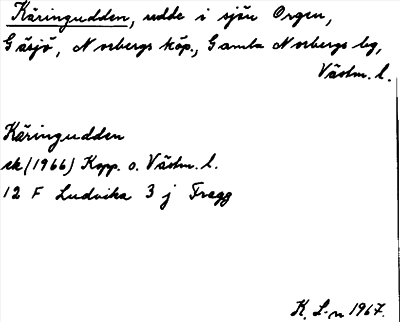 Käringudden, udde i sjön Orgen,
Gäsjö, Norbergs köp., Gamla Norbergs bg,
Västm. l.
Käringudden
ek (1966) Kopp. o. Västm. l.
12 F Ludvika 3 j Fragg
K. L-n 1967.